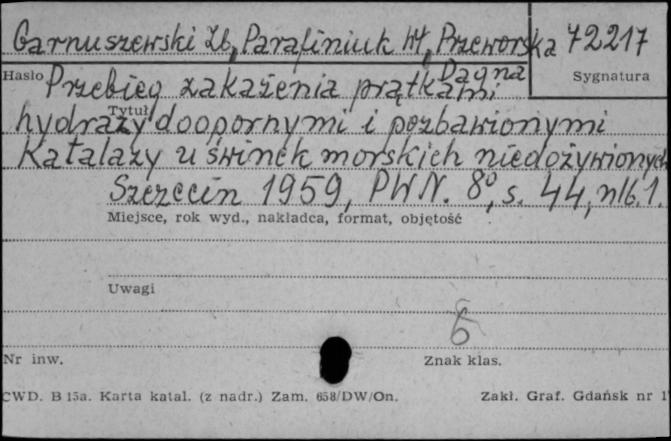 Garnuszewski Zb., Parafiniuk Wł., Przeworska 72217
Dagna
Hasło Sygnatura
Przebieg zakażenia prątkami
Tytuł
hydrazydoopornymi i pozbawionymi
katalazy u świnek morskich niedożywionych
Szczecin 1959, PWN. 8°, s. 44, nlb. 1.
Miejsce, rok wyd., nakładca, format, objętość
Uwagi
6
Nr inw. Znak klas.
CWD. B 15a. Karta katal. (z nadr.) Zam. 658/DW/On. Zakł. Graf. Gdańsk nr 1